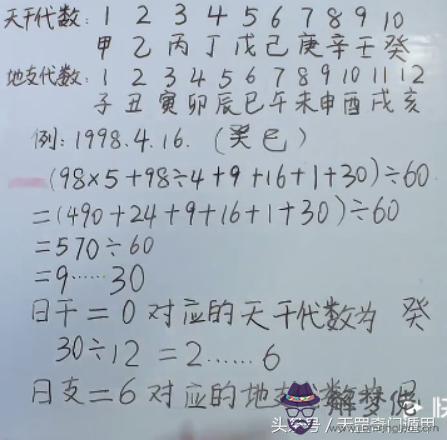 天干代数: 1 2 3 4 5 6 7 8 9 10
甲 乙 丙 丁 戊 己 庚 辛 壬 癸
地支代数: 1 2 3 4 5 6 7 8 9 10 11 12
子 丑 寅 卯 辰 巳 午 未 申 酉 戌 亥
例: 1998.4.16. (癸巳)
(98×5+98÷4+9+16+1+30)÷60
=(490+24+9+16+1+30)÷60
=570÷60
=9……30
日干=0 对应的天干代数为 癸
30÷12 =2……6
日支=6 对应的地支
解梦佬
头条号/天罡奇门遁甲